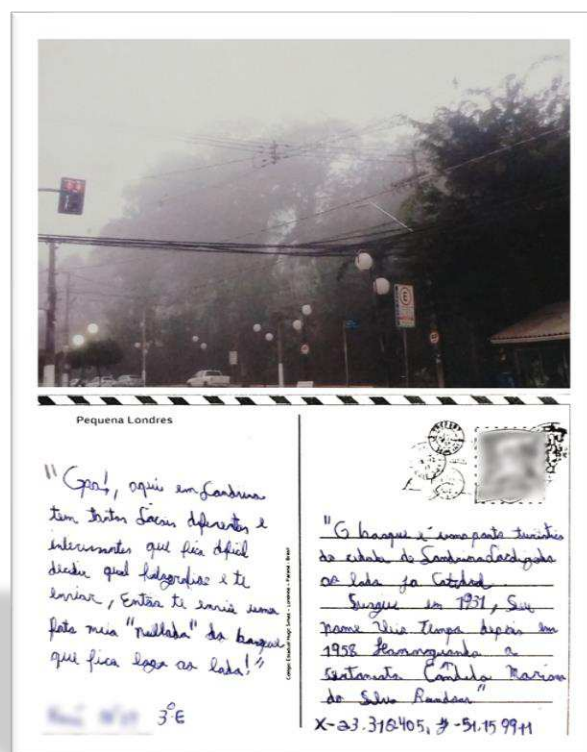 Pequena Londres
"Opa!, aqui em Londrina
tem tantos Locais diferentes e
interessantes que fica difícil
decidir qual fotografar e te
enviar, Então te envio uma
foto meia "nublada" do bosque
que fica logo ao lado!"
3º E
Colégio Estadual Hugo Simas - Londrina - Paraná - Brasil
"O bosque é uma ponto turístico
da cidade de Londrina Localizado
ao lado da Catedral
Surgiu em 1931, Seu
nome Veio tempo depois em
1958 Homenageando o
sertanista Cândido Mariano
da Silva Rondon"